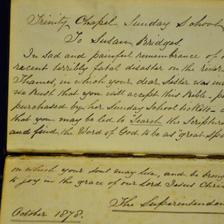 Trinity Chapel Sunday School
To Susan Bridges,
In sad and painful remembrance of
recent terribly fatal disaster on the river
Thames, in which your dear Sister was
us trust that you will accept this Bible,
purchased by her Sunday School tickets
that you may be led to search the Scriptures
and find the Word of God to be as great
on which your soul may live, and be
to joy in the grace of our Lord Jesus Christ
The Superintendent
October 1878.